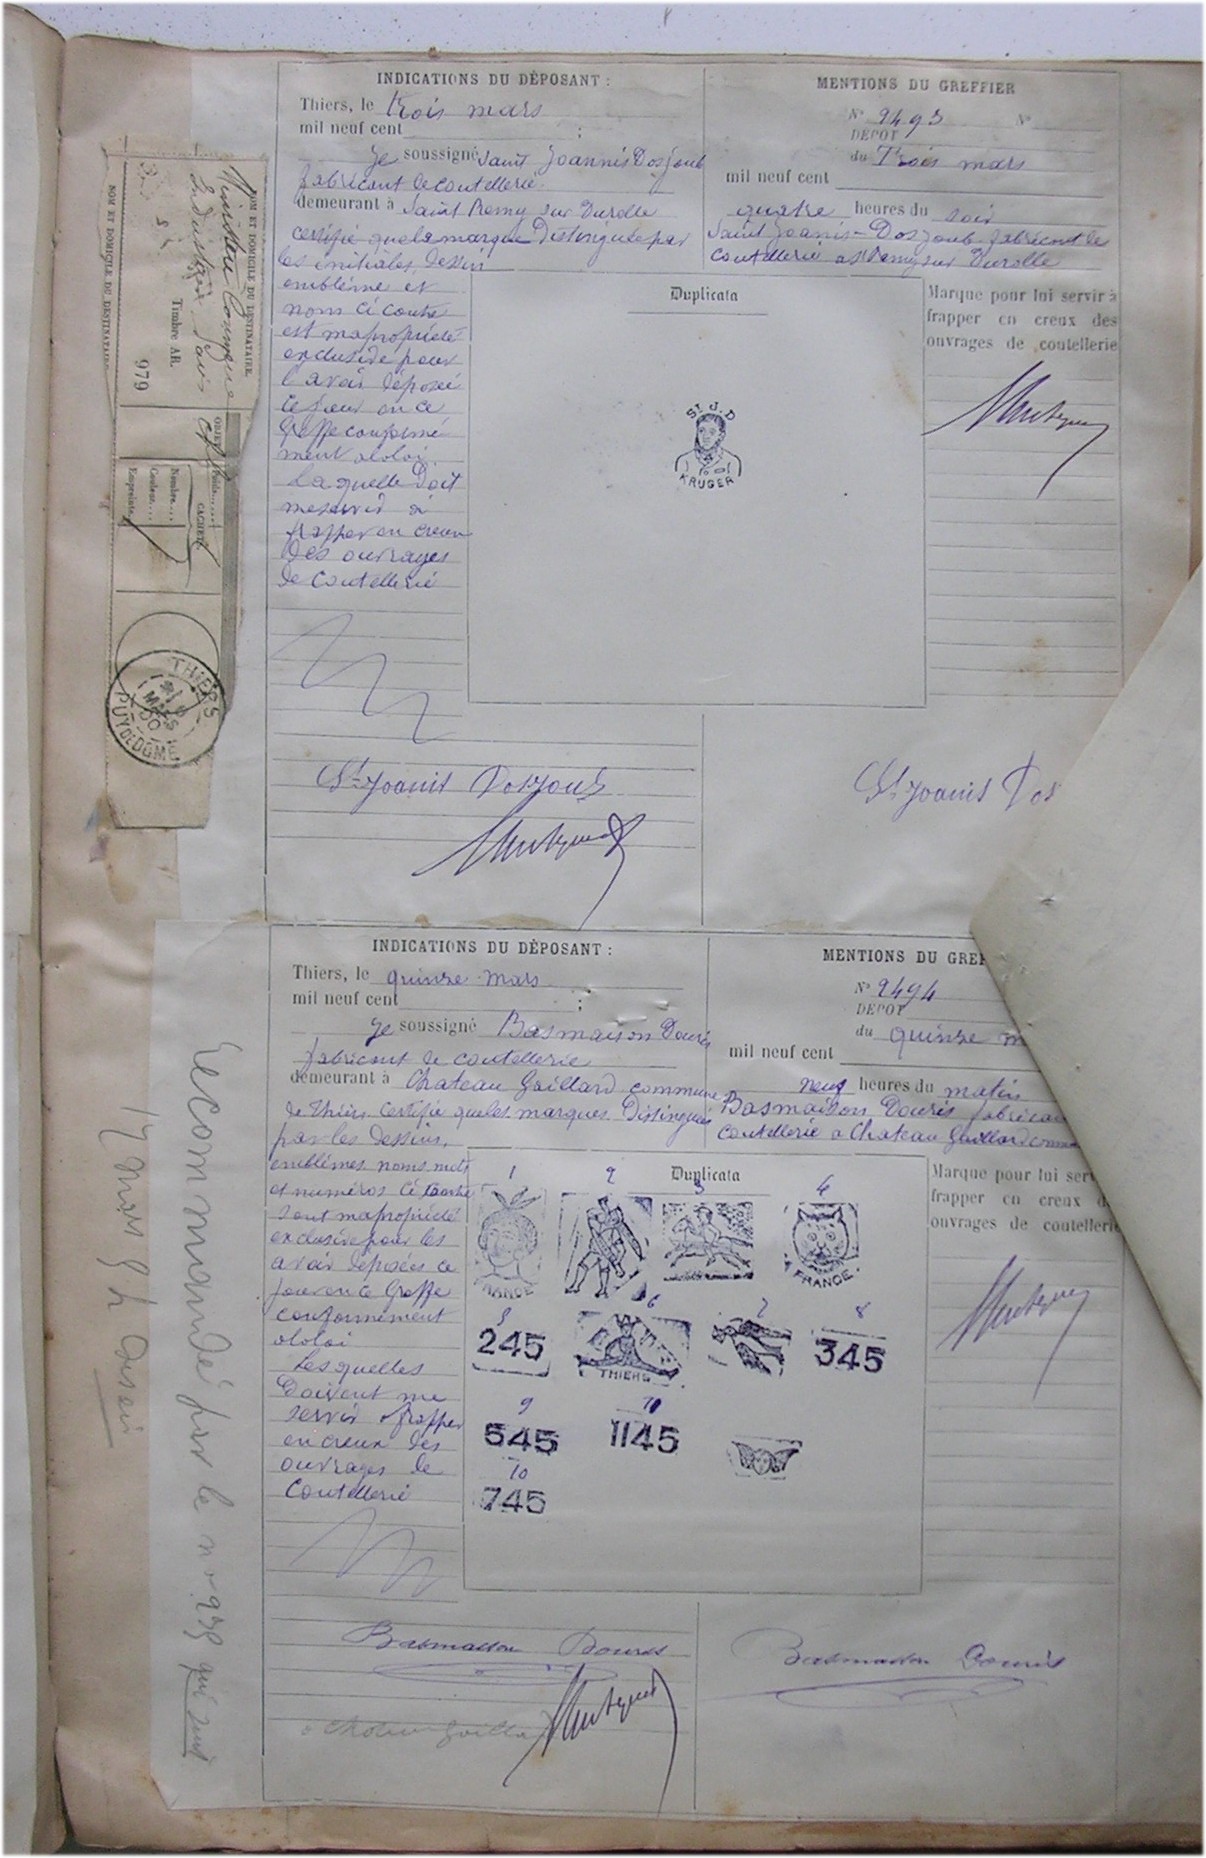 INDICATIONS DU DÉPOSANT :
Thiers, le trois mars
mil neuf cent ;
Je soussigné Saint Joannis Dosjoub
fabricant de coutellerie
demeurant à Saint Remy sur Durolle
certifie que la marque Distinguée par
les initiales, dessin
emblème et
nom ci contre
est ma propriété
exclusive pour
l'avoir déposée
ce jour en ce
Greffe conformé
ment a la loi
La quelle Doit
me servir à
frapper en creux
Des ouvrages
de coutellerie
St Joanis Dosjoub
MENTIONS DU GREFFIER
N° 2493 N°
DEPOT
du Trois mars
mil neuf cent
quatre heures du soir
Saint Joanis-Dosjoub fabricant de
coutellerie a St Remy sur Durolle
Duplicata
St J.D
KRUGER
Marque pour lui servir à
frapper en creux des
ouvrages de coutellerie
St Joanis Dos
NOM ET DOMICILE DU DESTINATAIRE.
NOM ET DOMICILE DU DESTINATAIRE
Timbre AR.
979
OBJET
Poids
CACHETS
Nombre
Couleur
Empreinte
THIERS
MARS
PUY DE DOME
INDICATIONS DU DÉPOSANT :
Thiers, le quinze mars
mil neuf cent ;
Je soussigné Basmaison Douris
fabricant de coutellerie
demeurant à Chateau Gaillard commune
de Thiers certifie que les marques Distinguées
par les dessins,
emblèmes noms, mots
et numéros ci contre
sont ma propriété
exclusive pour les
avoir déposées ce
jour en ce Greffe
conformément
a la loi
Les quelles
Doivent me
servir a frapper
en creux des
ouvrages de
coutellerie
Basmaison Douris
MENTIONS DU GREF
N° 2494
DEPOT
du quinze m
mil neuf cent
neuf heures du matin
Basmaison Douris fabrican
coutellerie a Chateau Gaillard comm
Duplicata
1 2 3 4
FRANCE
FRANCE
5 6 7 8
245
THIERS
345
9 10
545 1145
10
745
Marque pour lui ser
frapper en creux d
ouvrages de coutellerie
Basmaison Douris
Recommandé par le n° 938 qui suit